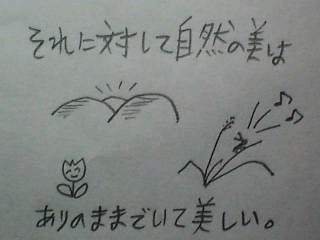 それに対して自然の美は
ありのままでいて美しい。